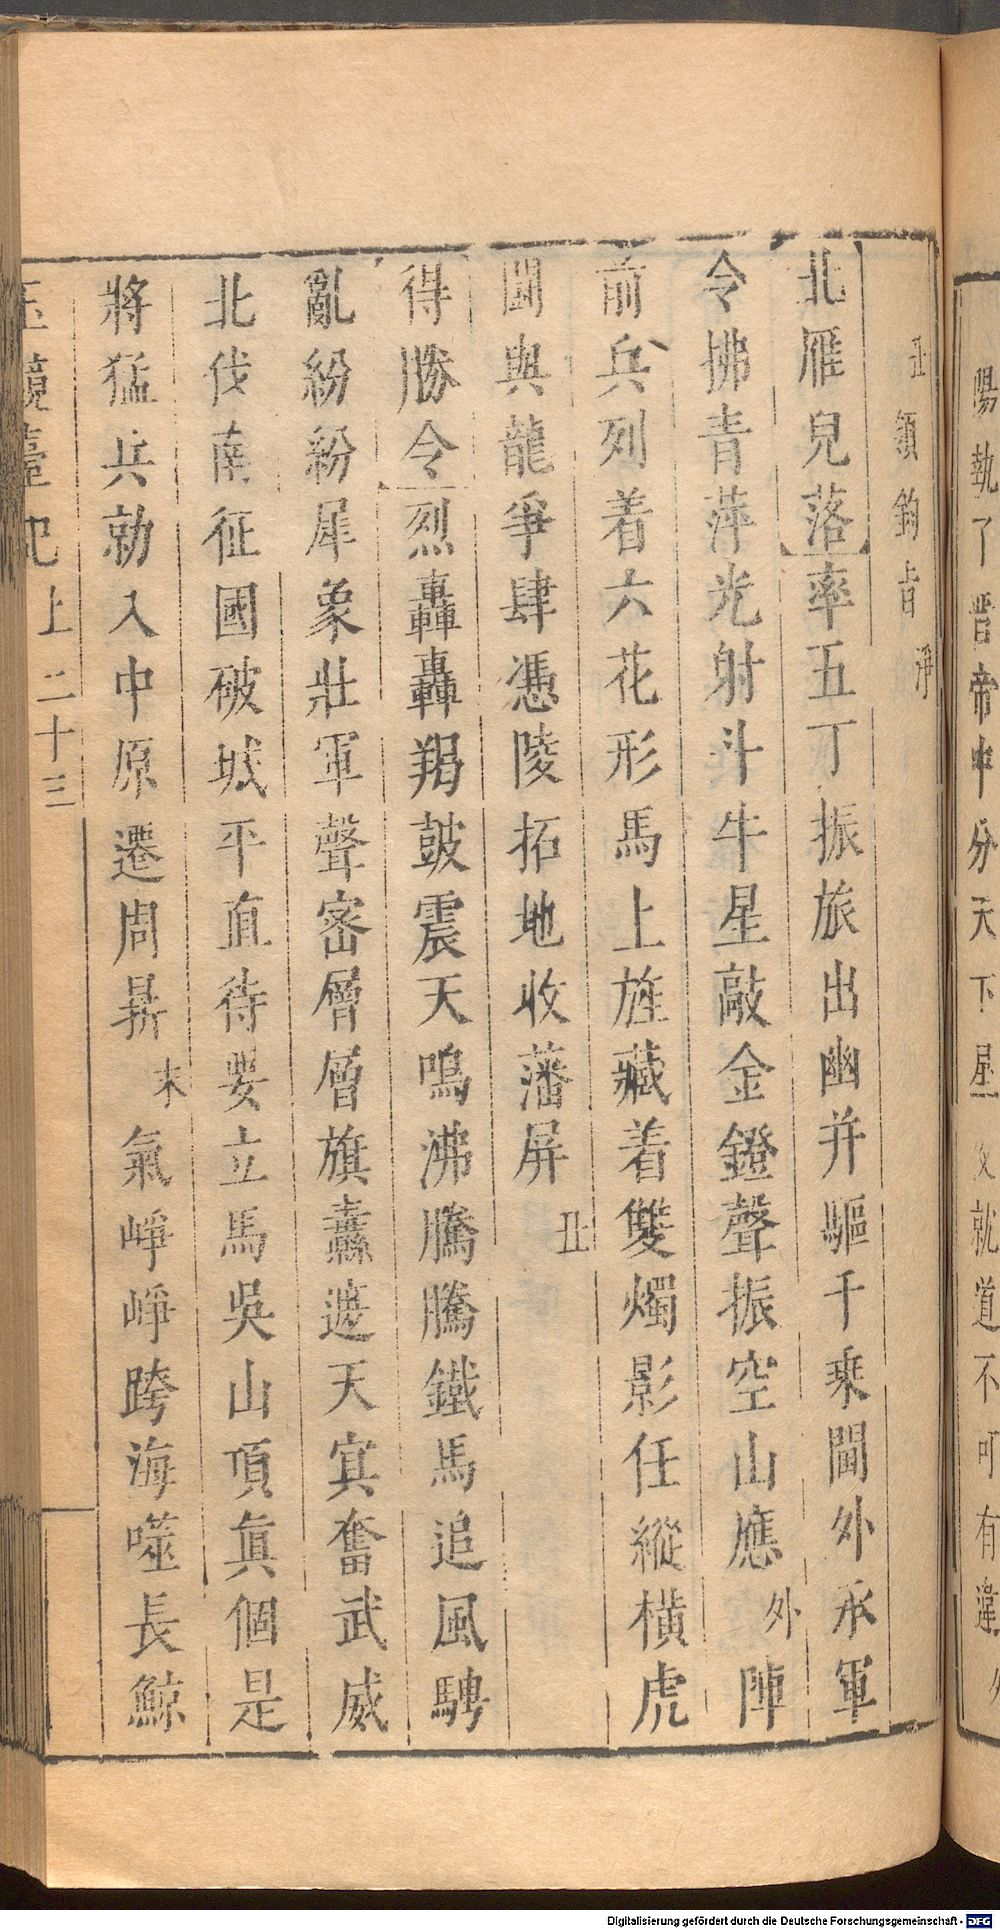 陽執了晉帝中分天下星 就道不可有違
丑領鈞旨淨
北雁兒落率五丁振旅出幽并驅千乘閫外承軍
令拂青萍光射斗牛星敲金鐙聲振空山應外陣
前兵列着六花形馬上旌藏着雙燭影任縱橫虎
鬪與龍爭肆憑陵拓地收藩屏丑
得勝令烈轟轟羯鼓震天鳴沸騰騰鐵馬追風騁
亂紛紛犀象壯軍聲密層層旗纛遮天寘奮武威
北伐南征國破城平直待要立馬吳山頂眞個是
將猛兵勍入中原遷周鼎末氣崢崢跨海噬長鯨
玉鏡臺記上 二十三
Digitalisierung gefördert durch die Deutsche Forschungsgemeinschaft - DFG